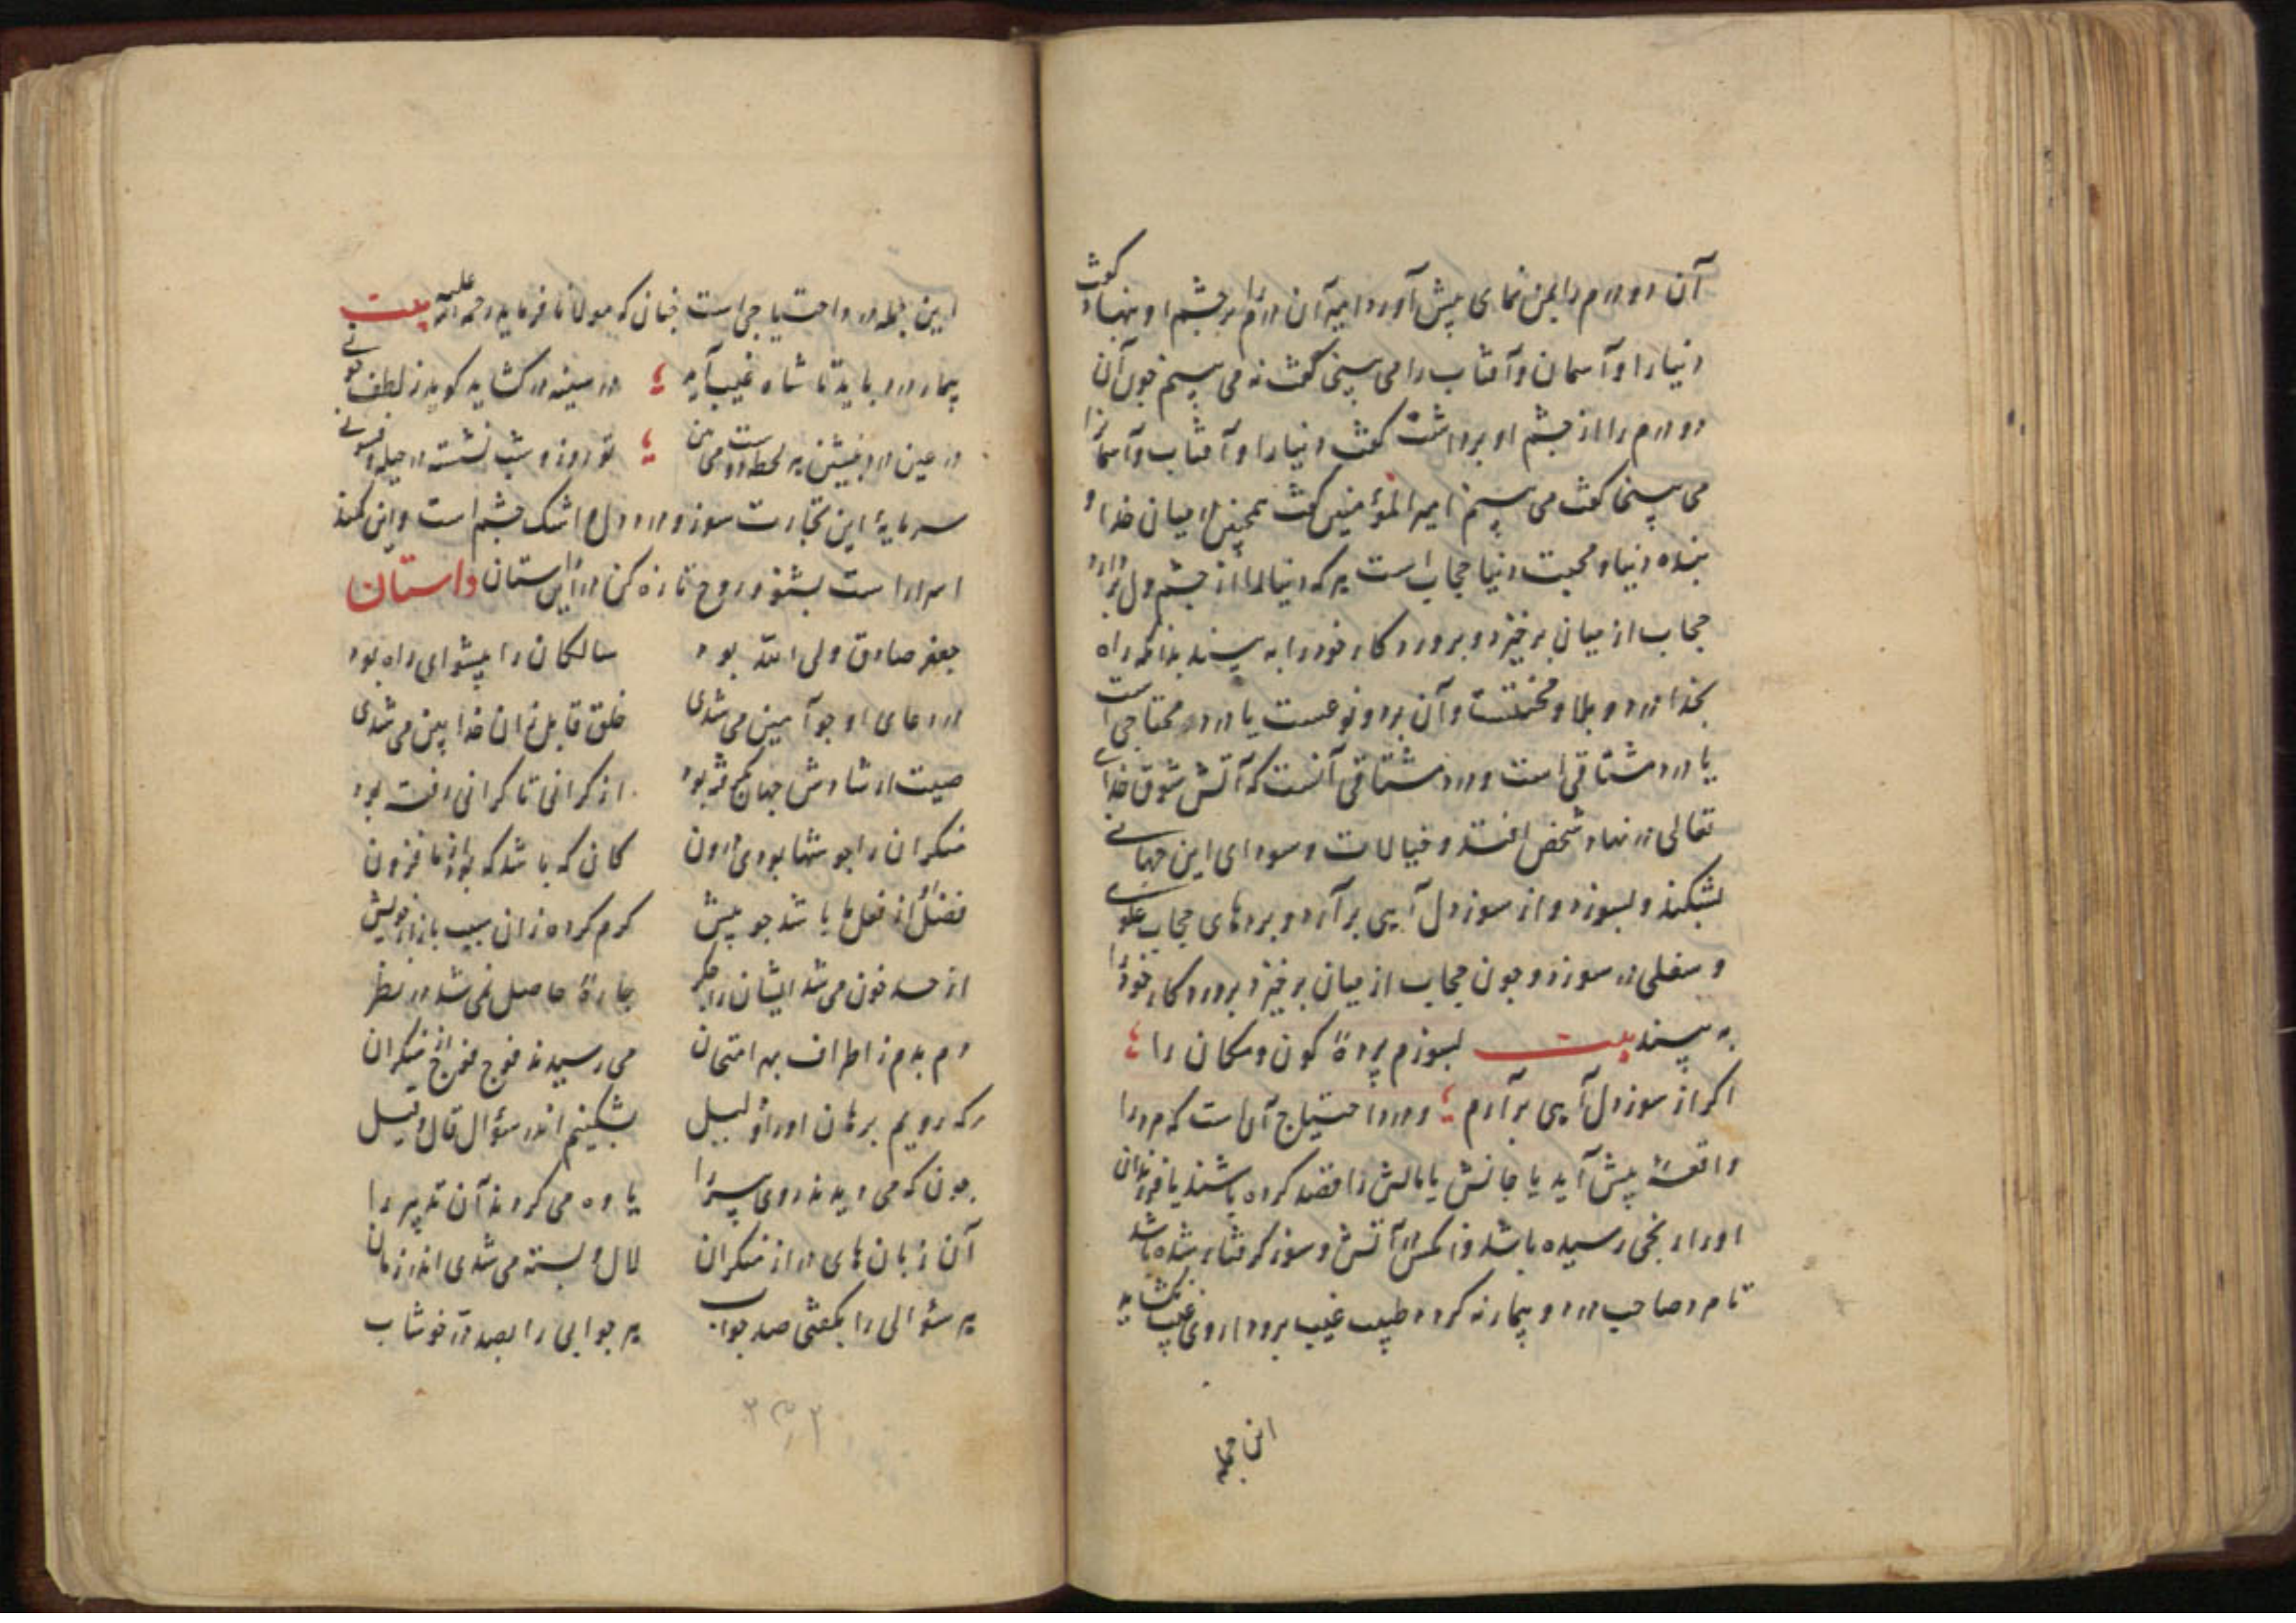 آن دو درم را بمن نمای پیش آورد امیر آن درم را بر چشم او نهاد گفت
دنیا را و آسمان و آفتاب را می بینی گفت نه می بینم چون آن
دو درم را از چشم او برداشت گفت دنیا را و آفتاب و آسمانرا
می بینی گفت می بینم امیر المؤمنین گفت همچنین میان خدا و
بنده دنیا و محبت دنیا حجاب است هر که دنیا را از چشم دل بردارد
حجاب از میان برخیزد و بروردکار خود را به بیند بدانکه راه
بخدا درد و بلا و محنتست و آن بر دو نوعست یا درد محتاجی است
یا درد مشتاقی است و درد مشتاقی آنست که آتش شوق خدای
تعالی در نهاد شخص افتد و خیالات و سودای این جهانی
بشکند و بسوزد و از سوز دل آهی بر آرد و بردهای حجاب علوی
و سفلی در سوزد و جون حجاب از میان برخیزد بروردکار خود را
به بیند بیت بسوزم پردۀ کون و مکان را
اکر از سوز دل آهی بر آرم و درد احتیاج آن است که مرد را
واقعۀ پیش آید یا جانش یا مالش را قصد کرده باشند یا فرزندان
او را رنجی رسیده باشد و آنکس در آتش و سوز کرفتار شده باشد
تا مرد صاحب درد و بیمار نه کردد طبیب غیب برو داروی غیب نکشاید
این جمله
این جمله درد احتیاجی است جنان که مولانا فرماید رحمه الله علیه بیت
بیمار درد باید تا شاه غیب آید در سینه در کشاید کوید ز لطف جونی
در عین درد بنشین هر لحظه دوست می بین تو روز و شب نشسته در حیله و فسونی
سرمایۀ این تجارت سوز و درد دل و اشک چشم است و این کند
اسرار است بشنو و روح تازه کن در این داستان داستان
جعفر صادق ولی الله بود سالکان را پیشوای راه بود
در دعای او جو آمین می شدی خلق قابل زان خدا بین می شدی
صیت ارشادش جهان بکرفته بود از کرانی تا کرانی رفته بود
منکران را جو شها بودی درون کان که باشد که بود از ما فزون
فضل او از فعل ها باشد جو پیش کرم کرده زان سبب بازار خویش
از حسد خون می شد ایشان را جکر جارۀ حاصل نمی شد در نظر
دم بدم ز اطراف بهر امتحان می رسیدند فوج فوج از منکران
که رویم برهان او را و دلیل بشکنیم اندر سؤال قال و قیل
جون که می دیدند روی پیر را یاوه می کردند آن تدبیر را
آن زبان های دراز منکران لال و بسته می شدی اندر زمان
هر سؤالی را بکفتی صد جواب هر جوابی را بصد در خوشاب